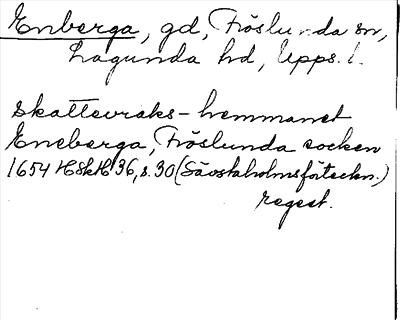 Enberga, gd, Fröslunda sn,
Lagunda hd, Upps. l.
Skattevraks-hemmanet
Eneberga, Fröslunda socken
1654 HSkH 36, s. 30 (Säostaholmsförteckn.)
regest.